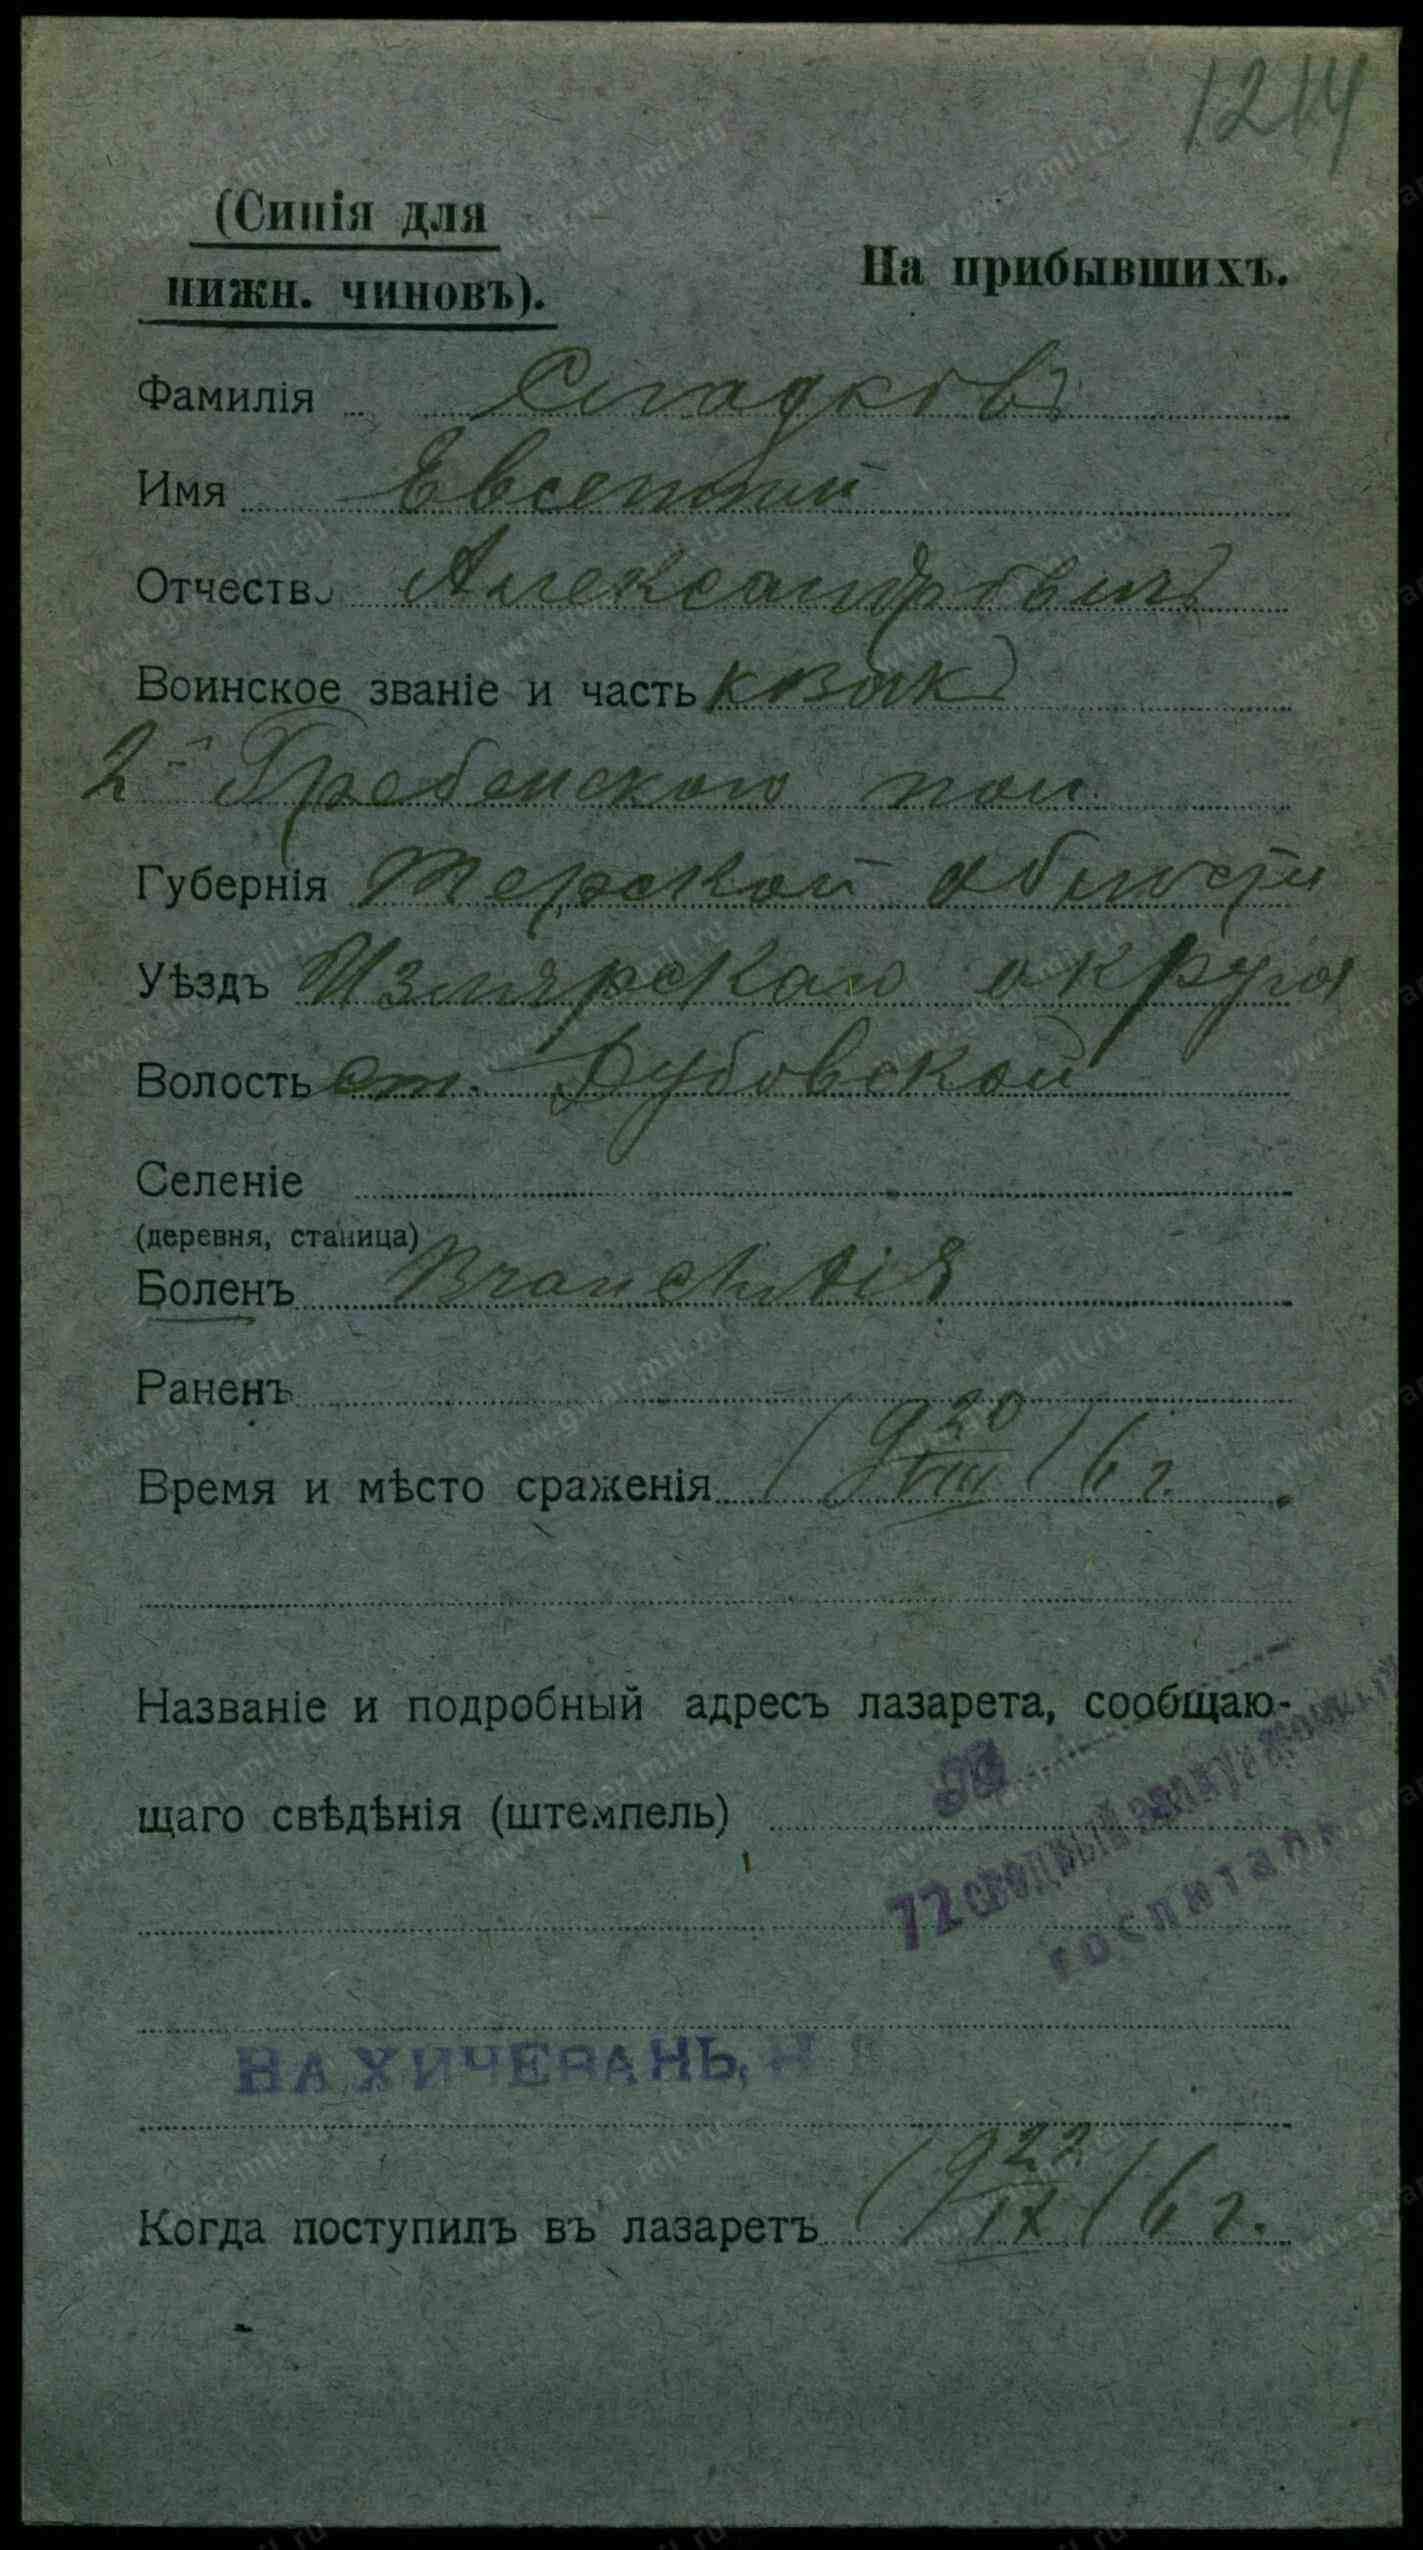 1214
(Синія для
нижн. чиновъ).
На прибывшихъ.
Фамилія Сладковъ
Имя Евсентий
Отчество Александровичъ
Воинское званіе и часть казакъ
2-й Гребенского пол.
Губернія Терской области
Уѣздъ Кизлярскаго округа
Волость ст. Дубовской
Селеніе
(деревня, станица)
Боленъ Bronchitis
Раненъ
Время и мѣсто сраженія 19 20/VIII 16 г.
Названіе и подробный адресъ лазарета, сообщаю-
щаго свѣдѣнія (штемпель)
72 сводный эвакуаціонный
госпиталь
НАХИЧЕВАНЬ, Н
Когда поступилъ въ лазаретъ 19 23/IX 16 г.